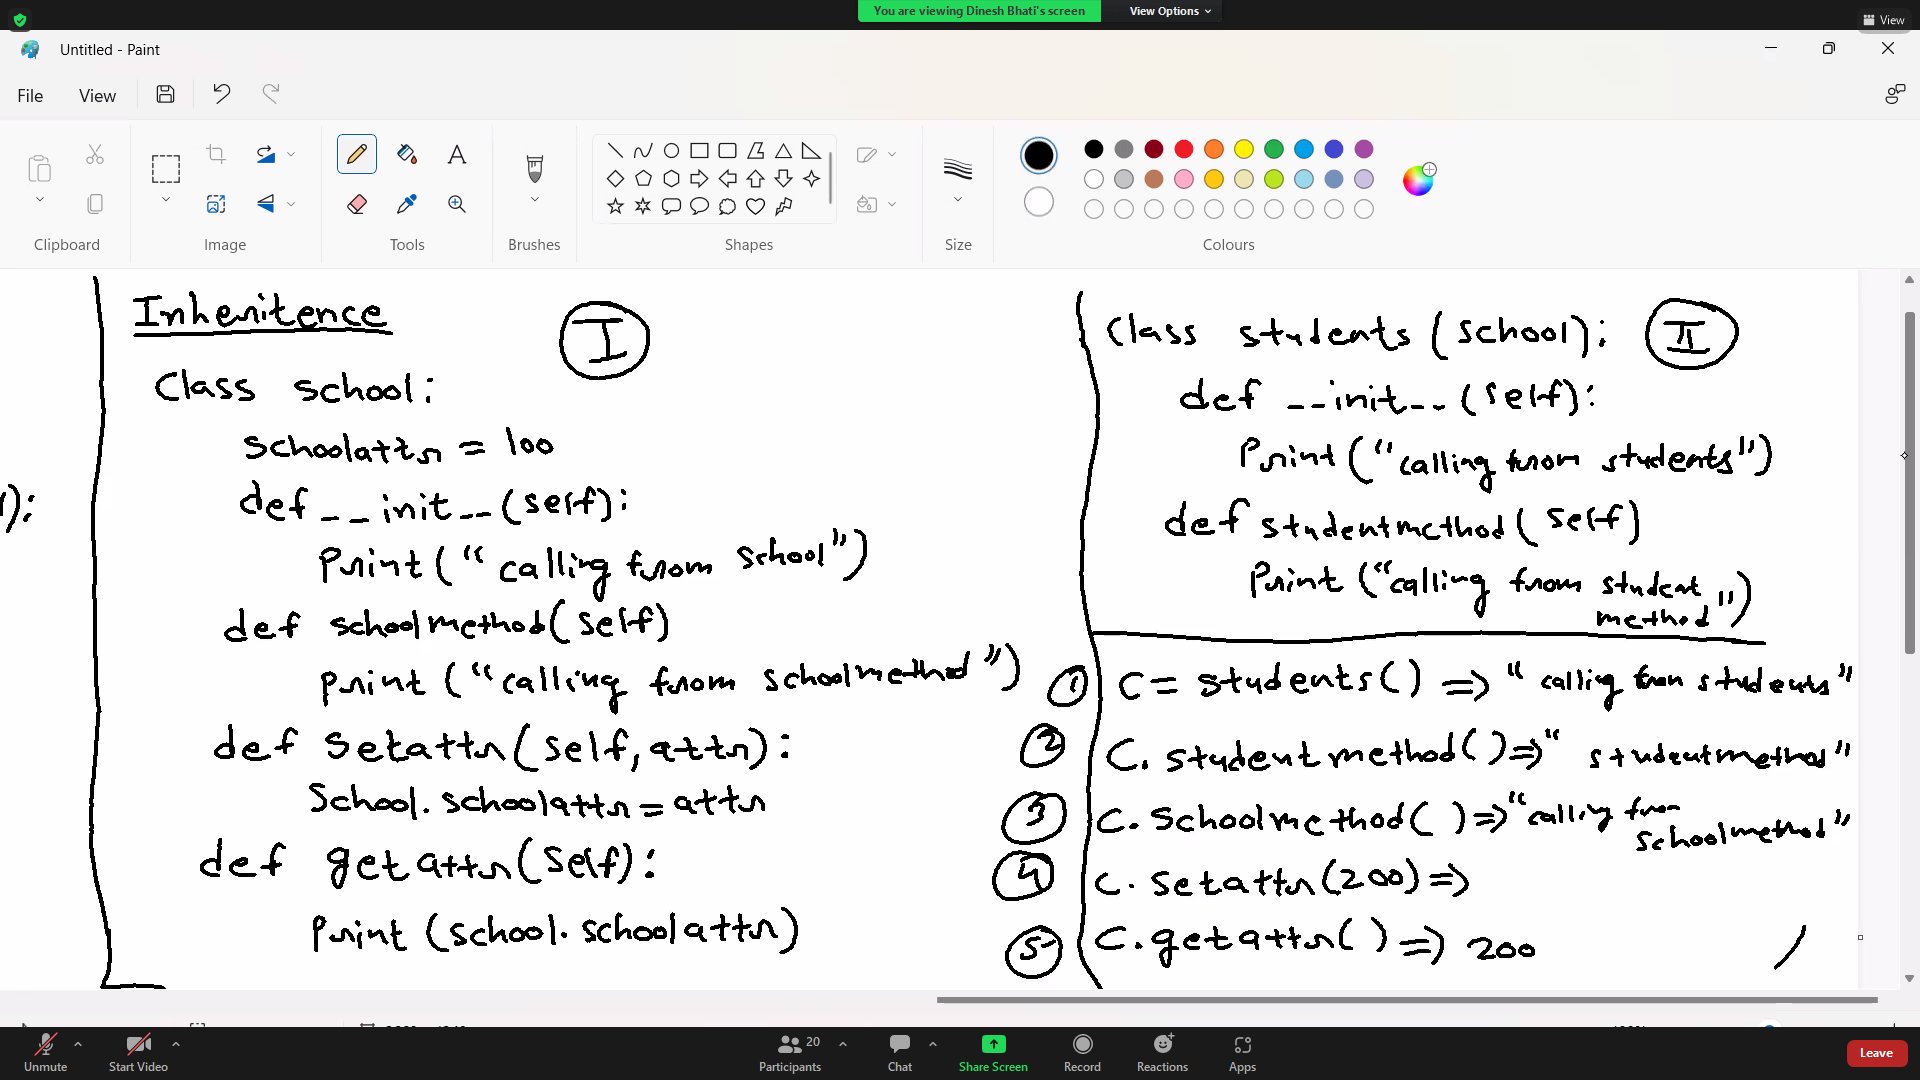 You are viewing Dinesh Bhati's screen
View Options
View
Untitled - Paint
File
View
Clipboard
Image
Tools
Brushes
Shapes
Size
Colours
Inheritence
I
Class school:
schoolattr = 100
def __init__(self):
Print("calling from school")
def schoolmethod(self)
print("calling from schoolmethod")
def setattr(self,attr):
School.schoolattr = attr
def getattr(self):
Print(school.schoolattr)
):
Class students(school):
II
def __init__(self):
Print("calling from students")
def studentmethod(self)
Print("calling from student
method")
1 C = students() => "calling from students"
2 C.studentmethod() => "studentmethod"
3 C.Schoolmethod() => "calling from
schoolmethod"
4 C.setattr(200) =>
5 C.getattr() => 200
Unmute
Start Video
Participants
20
Chat
Share Screen
Record
Reactions
Apps
Leave